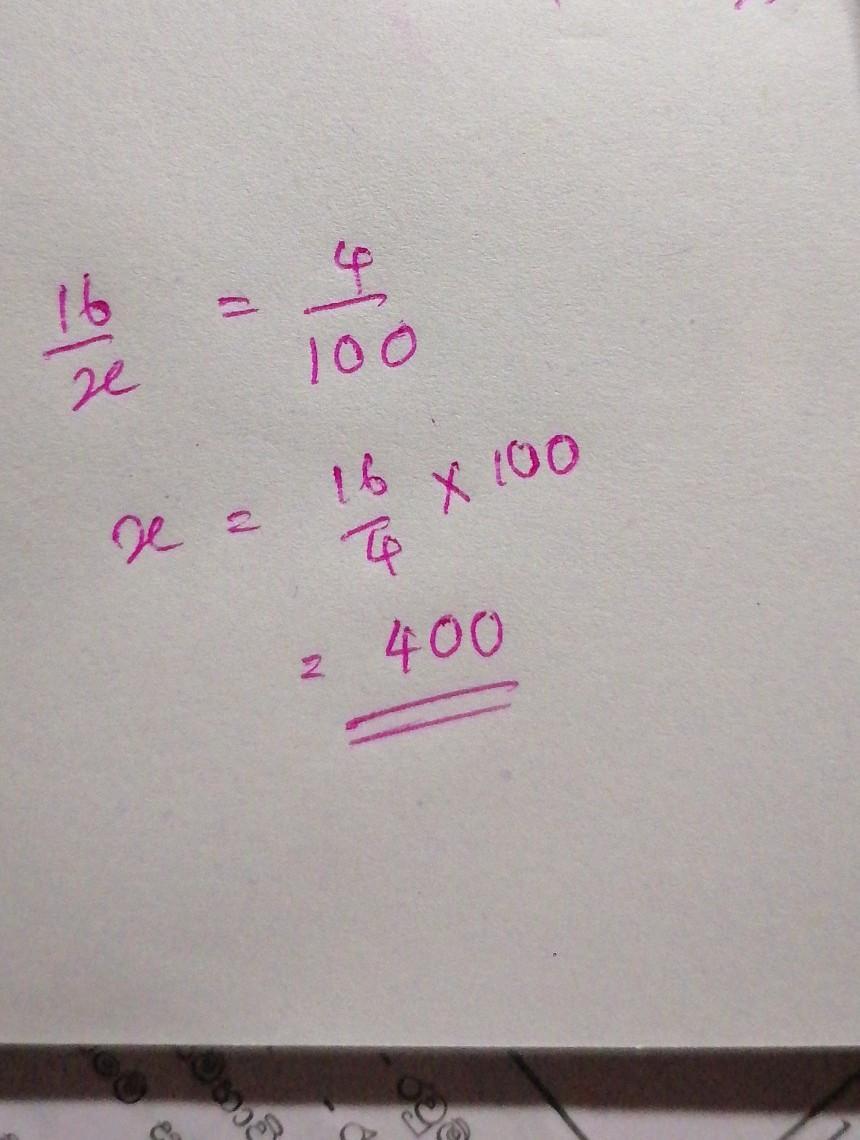 16/x = 4/100
x = 16/4 × 100
= 400